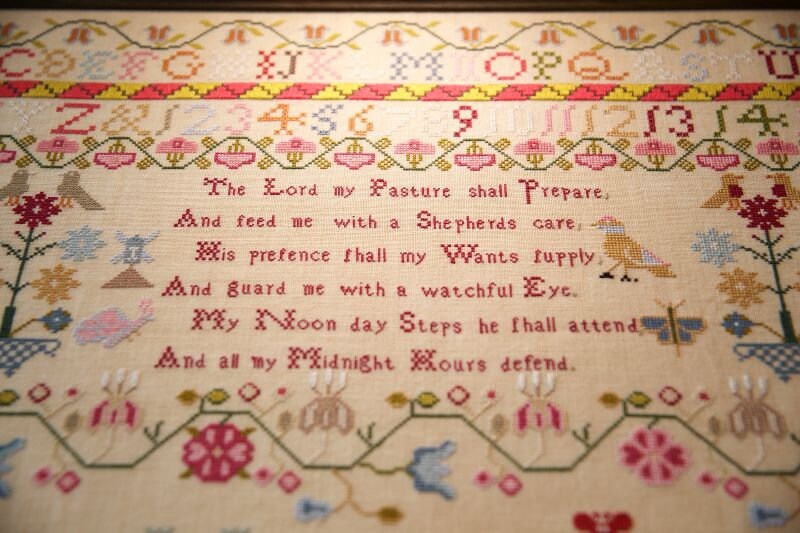 C D E F G H I J K L M N O P Q R S T U
Y Z & 1 2 3 4 5 6 7 8 9 10 11 12 13 14
The Lord my Pasture shall Prepare,
And feed me with a Shepherds care,
His preſence ſhall my Wants ſupply,
And guard me with a watchful Eye.
My Noon day Steps he ſhall attend
And all my Midnight Hours defend.